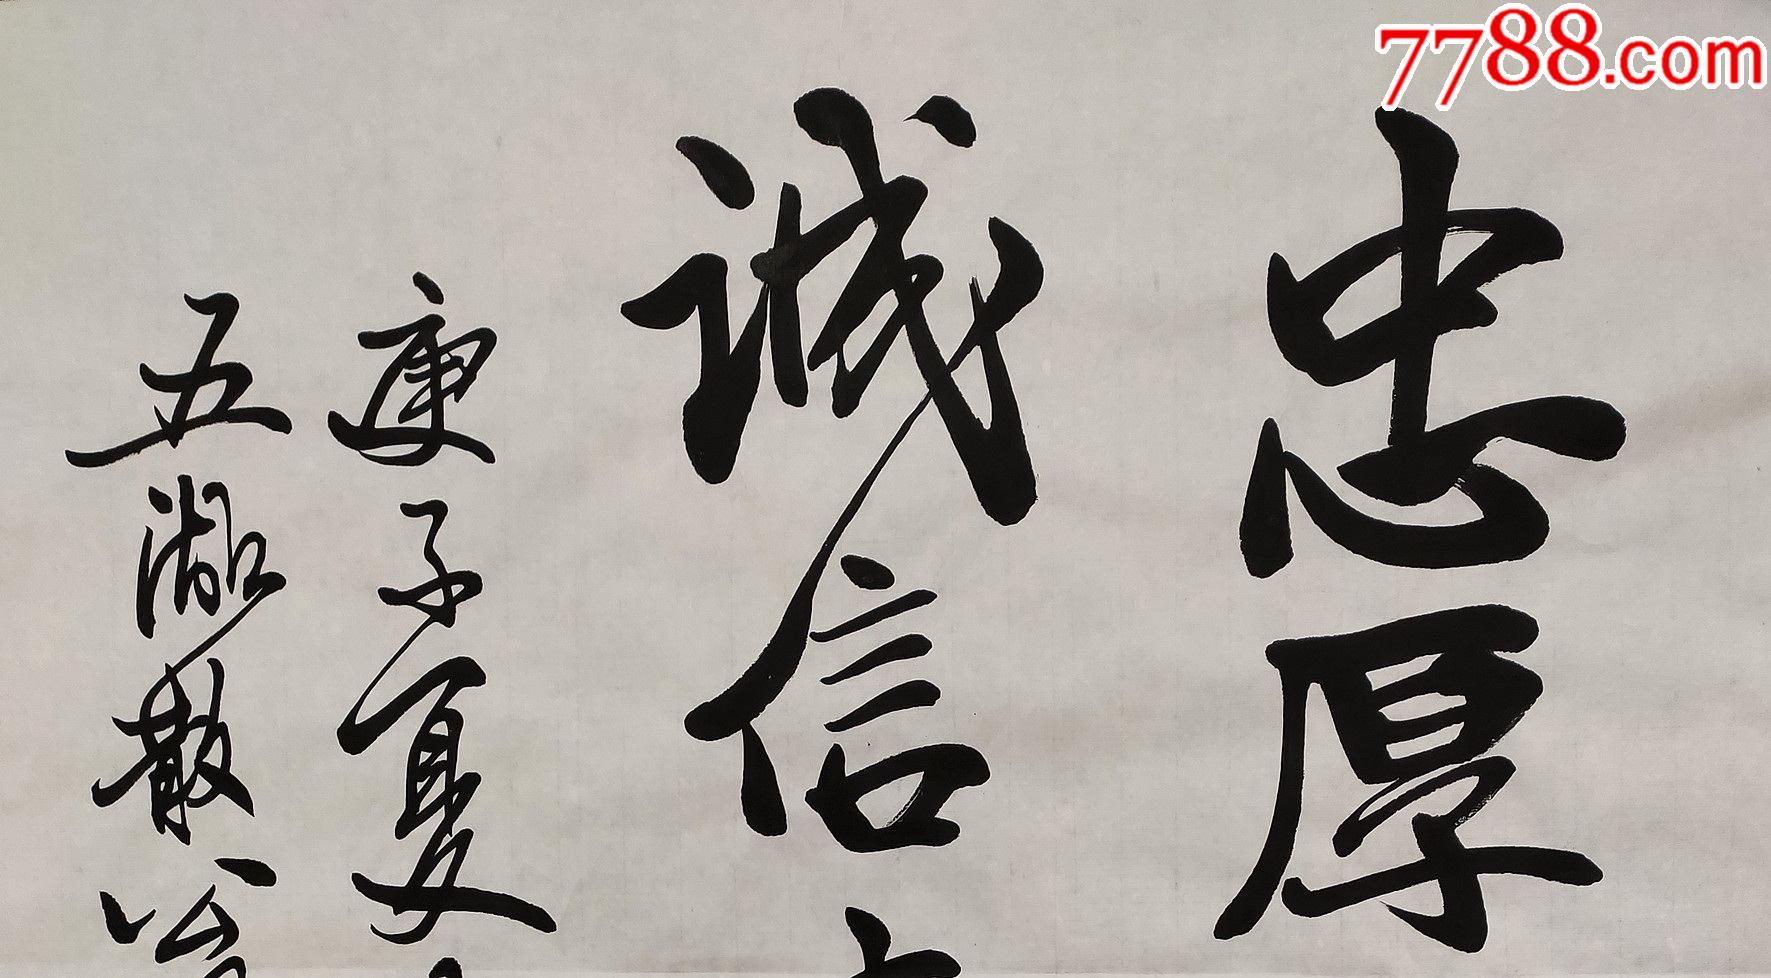 7788.com
忠厚
诚信
庚子夏
五湖散翁